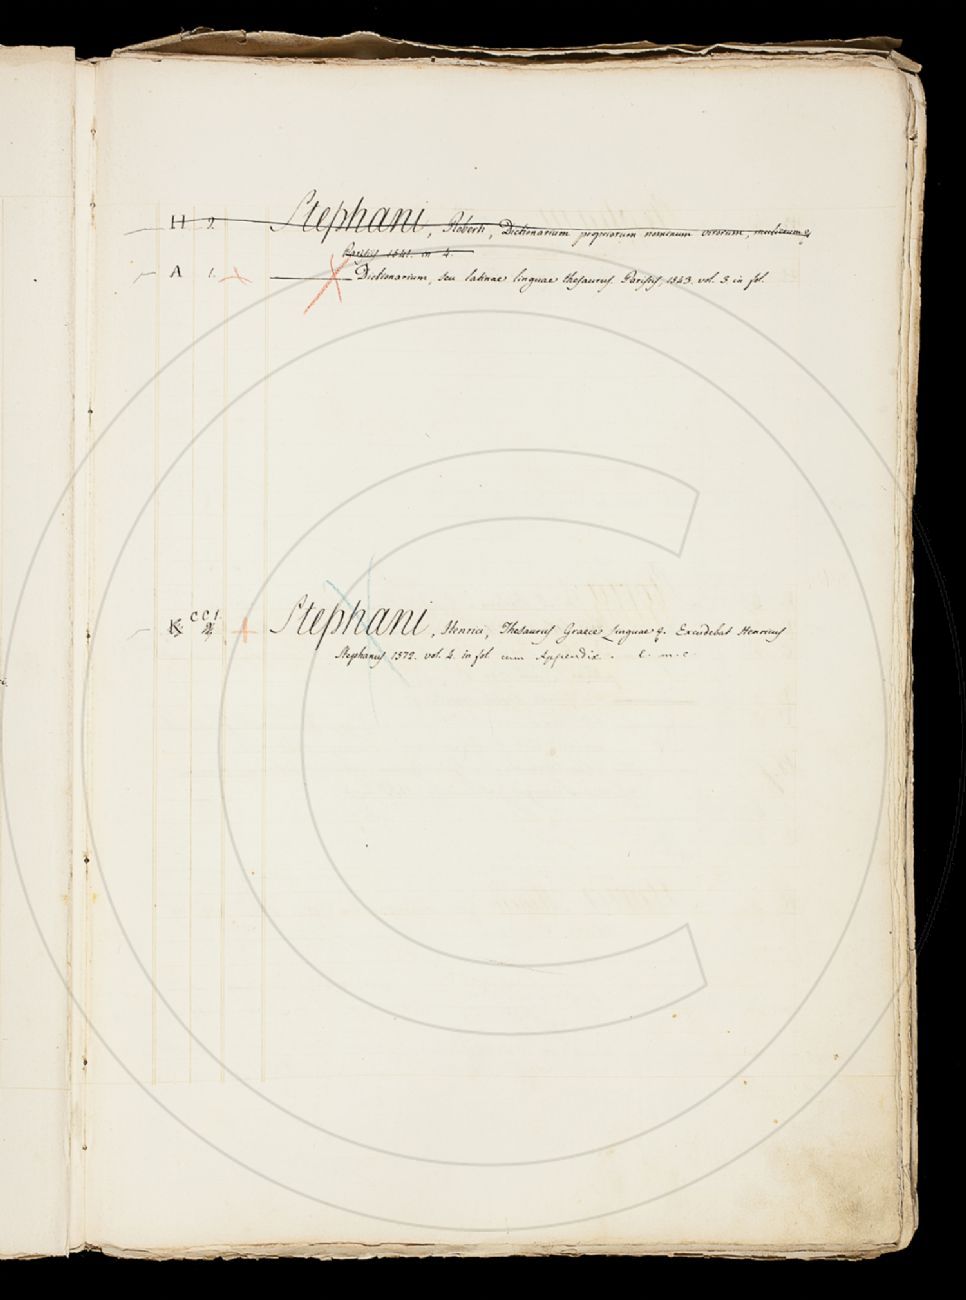 H 2. Stephani, Roberti, Dictionarium propriorum nominum virorum, mulierum &
Parisiis 1541. in 4.
A 1. Dictionarium, seu latinae linguae thesaurus. Parisiis, 1543. vol. 3 in fol.
K CC1. 2. Stephani, Henrici, Thesaurus Graece Linguae &. Excudebat Henricus
Stephanus 1572. vol. 4. in fol cum Appendix. C. m. c.